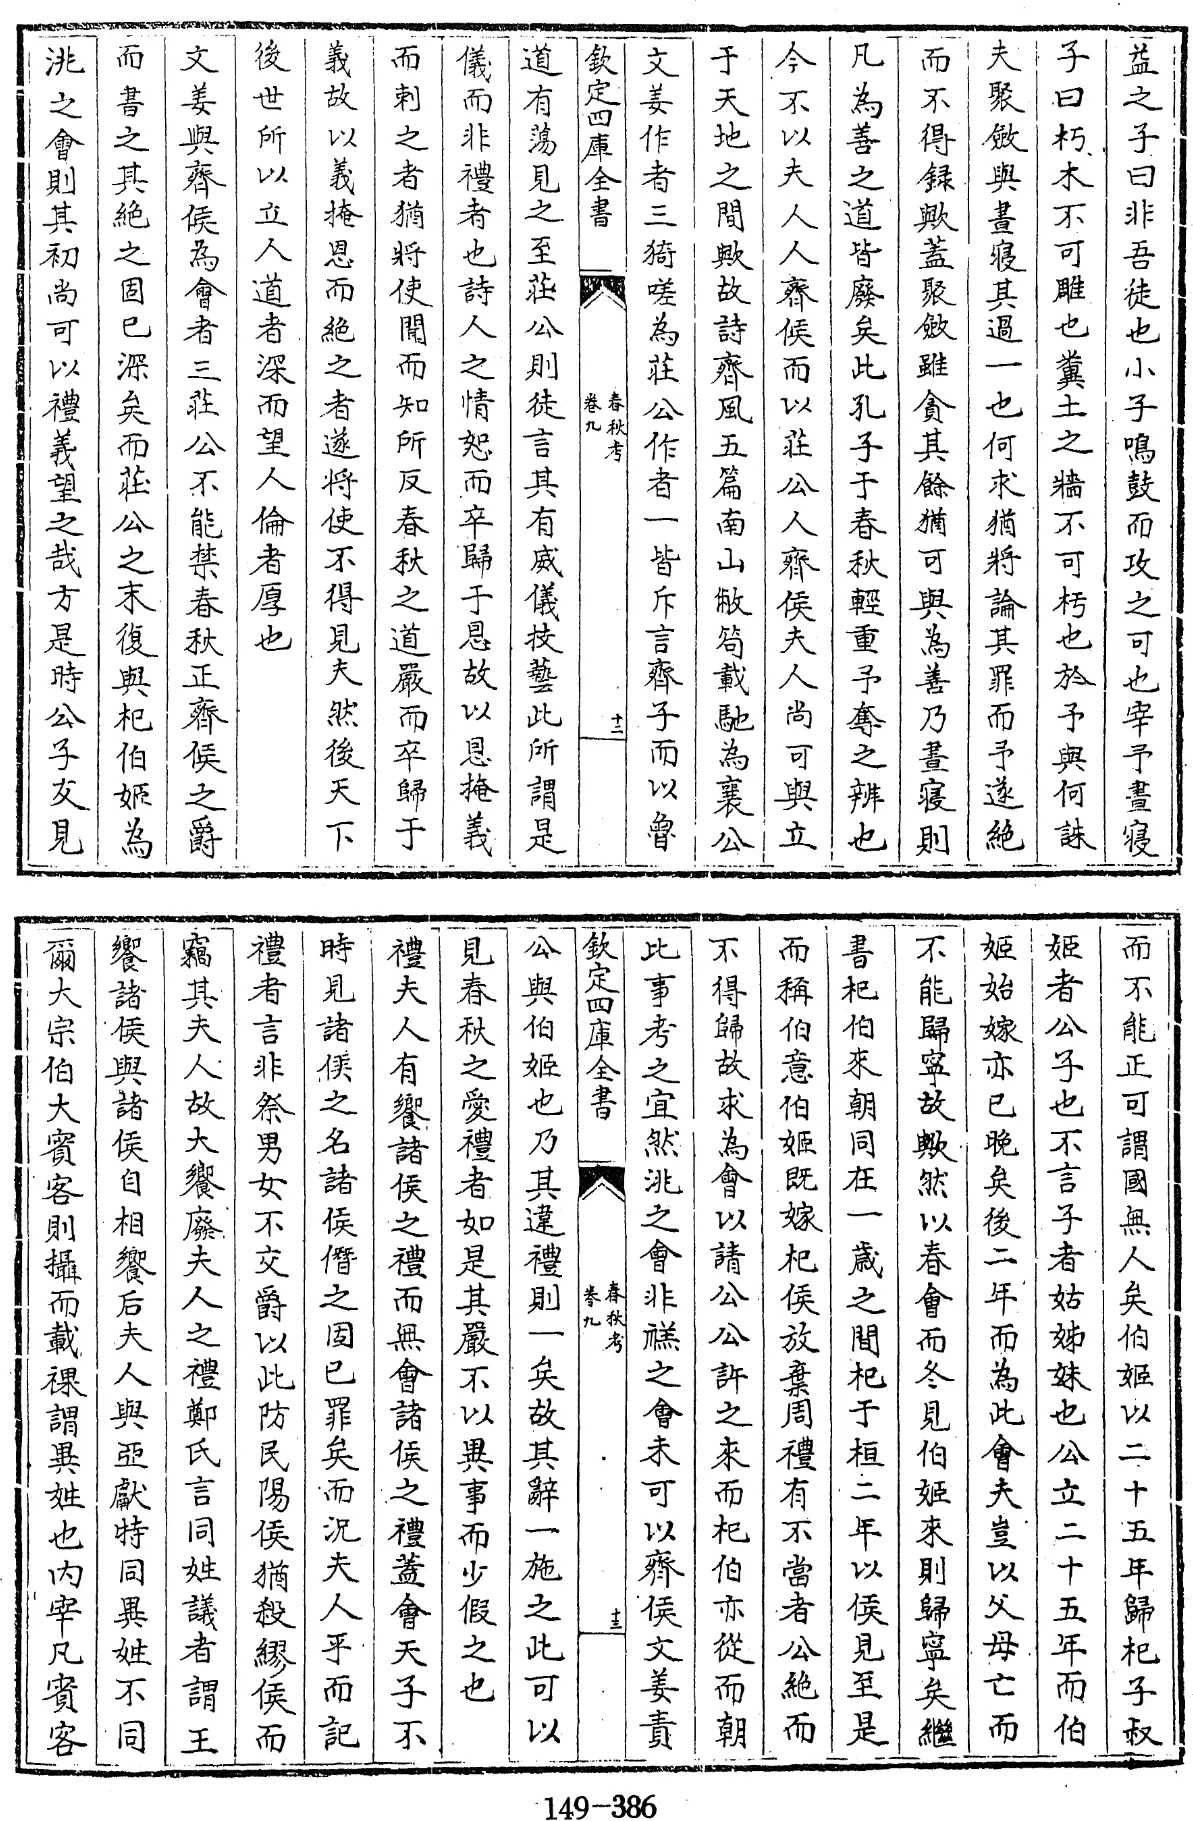 益之子曰非吾徒也小子鳴鼓而攻之可也宰予晝寢
子曰朽木不可雕也糞土之牆不可杇也於予與何誅
夫聚斂與晝寢其過一也何求猶將論其罪而予遂絶
而不得録歟蓋聚斂雖貪其餘猶可與為善乃晝寢則
凡為善之道皆廢矣此孔子于春秋輕重予奪之辨也
今不以夫人人齊侯而以莊公人齊侯夫人尚可與立
于天地之間歟故詩齊風五篇南山敝笱載馳為襄公
文姜作者三猗嗟為莊公作者一皆斥言齊子而以魯
欽定四庫全書
春秋考
卷九
十二
道有蕩見之至莊公則徒言其有威儀技藝此所謂是
儀而非禮者也詩人之情恕而卒歸于恩故以恩掩義
而刺之者猶將使聞而知所反春秋之道嚴而卒歸于
義故以義掩恩而絶之者遂將使不得見夫然後天下
後世所以立人道者深而望人倫者厚也
文姜與齊侯為會者三莊公不能禁春秋正齊侯之爵
而書之其絶之固已深矣而莊公之末復與杞伯姬為
洮之會則其初尚可以禮義望之哉方是時公子友見
而不能正可謂國無人矣伯姬以二十五年歸杞子叔
姬者公子也不言子者姑姊妹也公立二十五年而伯
姬始嫁亦已晚矣後二年而為此會夫豈以父母亡而
不能歸寧故歟然以春會而冬見伯姬來則歸寧矣繼
書杞伯來朝同在一歲之間杞于桓二年以侯見至是
而稱伯意伯姬既嫁杞侯放棄周禮有不當者公絶而
不得歸故求為會以請公公許之來而杞伯亦從而朝
此事考之宜然洮之會非禚之會未可以齊侯文姜責
欽定四庫全書
春秋考
卷九
十三
公與伯姬也乃其違禮則一矣故其辭一施之此可以
見春秋之愛禮者如是其嚴不以異事而少假之也
禮夫人有饗諸侯之禮而無會諸侯之禮蓋會天子不
時見諸侯之名諸侯僭之固已罪矣而況夫人乎而記
禮者言非祭男女不交爵以此防民陽侯猶殺繆侯而
竊其夫人故大饗廢夫人之禮鄭氏言同姓議者謂王
饗諸侯與諸侯自相饗后夫人與亞獻特同異姓不同
爾大宗伯大賓客則攝而載祼謂異姓也内宰凡賓客
149-386